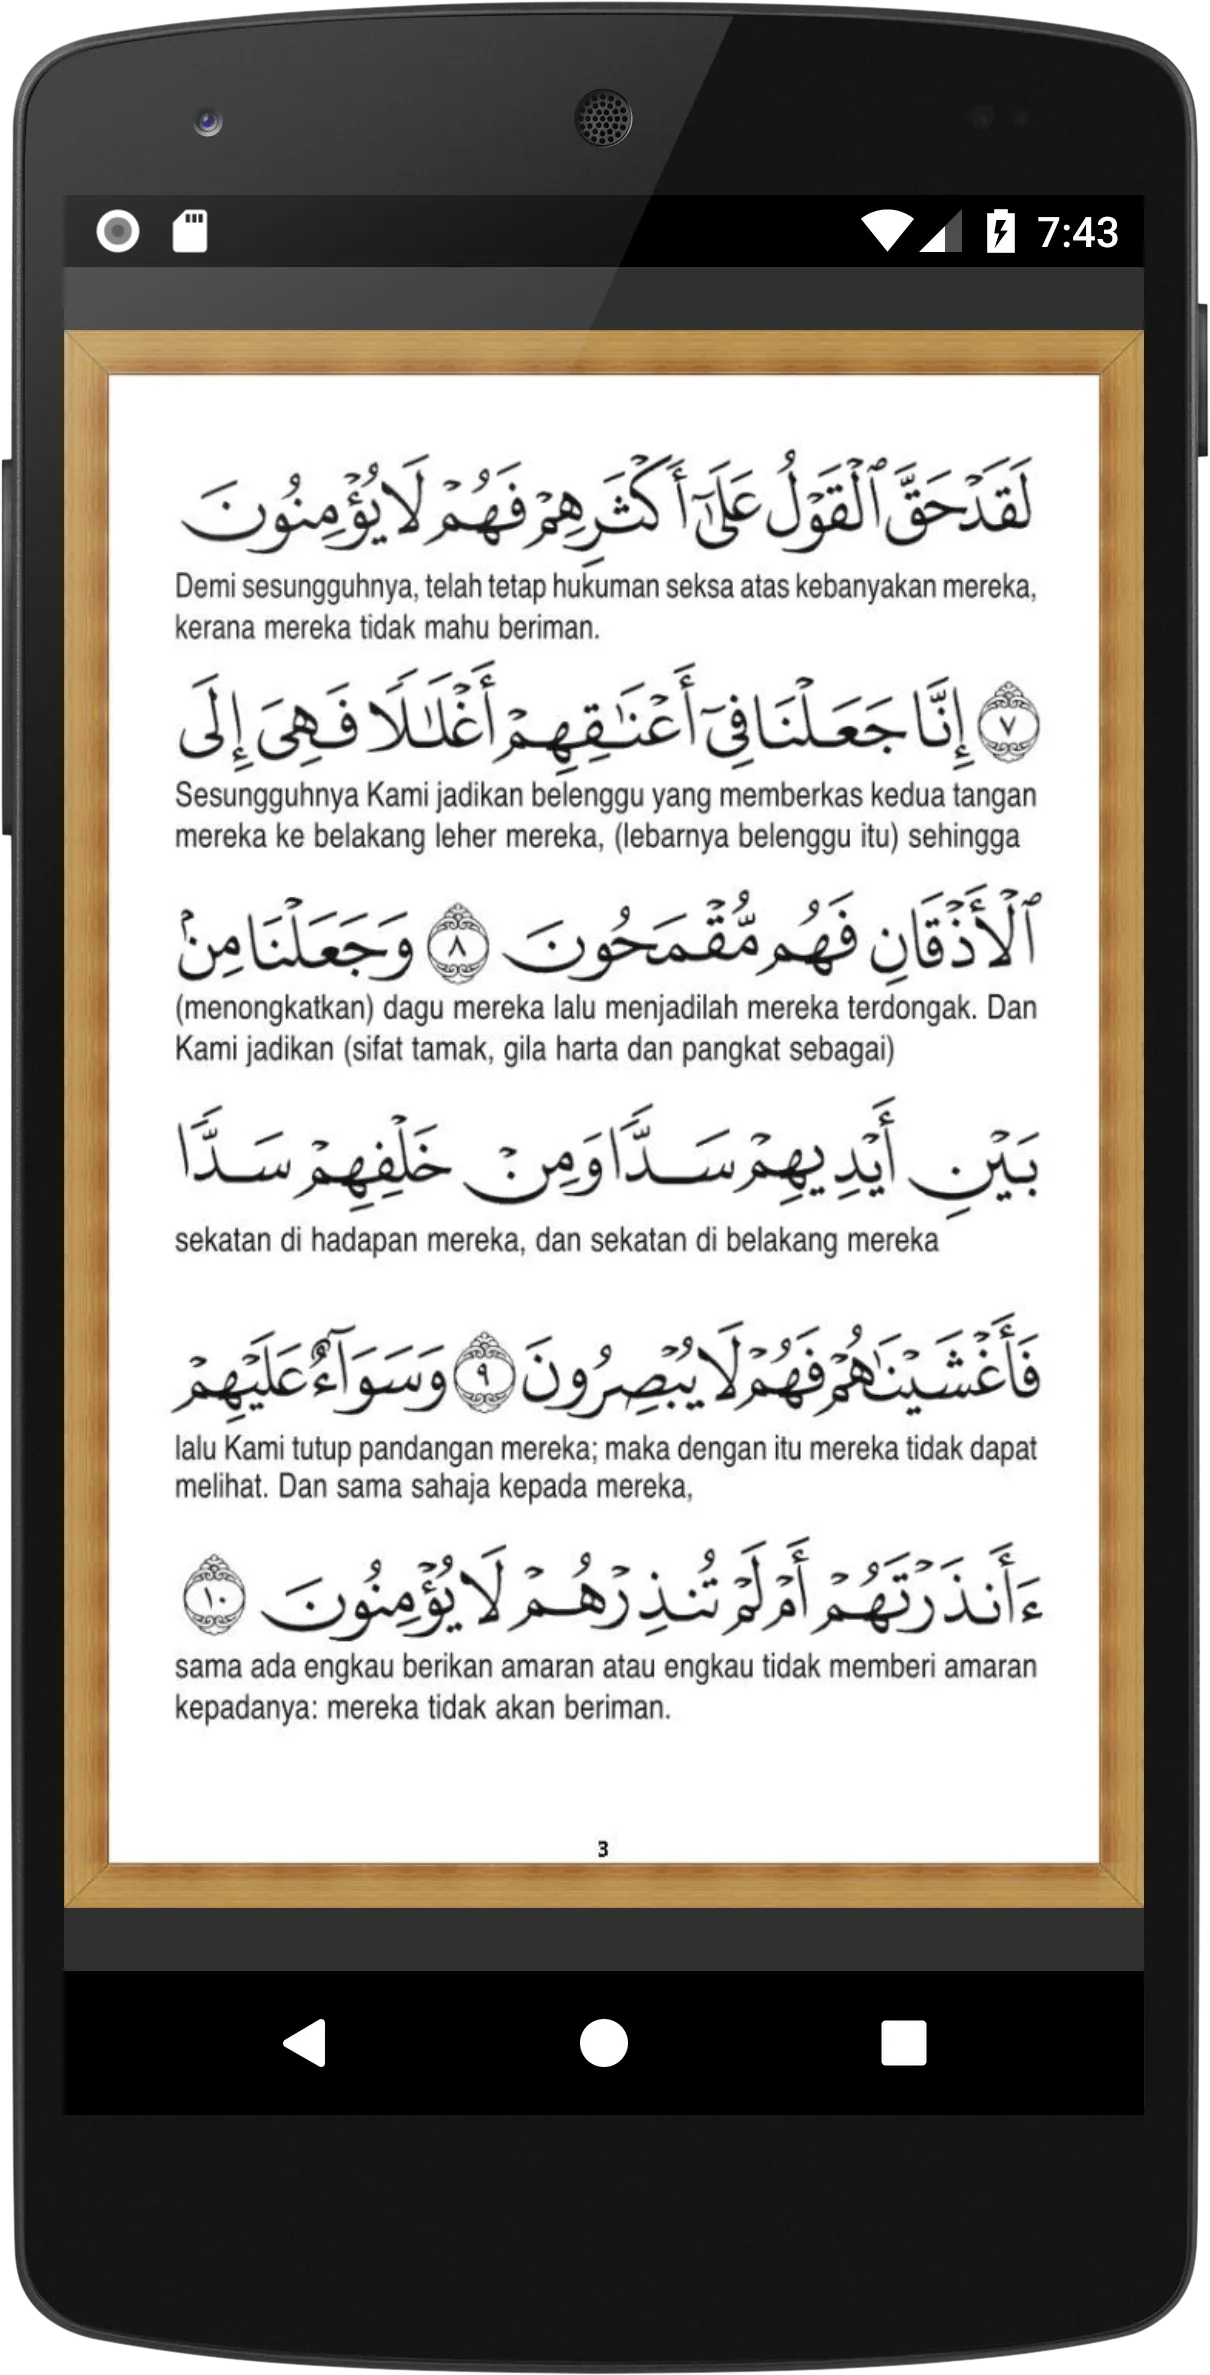 7:43
لَقَدْ حَقَّ ٱلْقَوْلُ عَلَىٰٓ أَكْثَرِهِمْ فَهُمْ لَا يُؤْمِنُونَ
Demi sesungguhnya, telah tetap hukuman seksa atas kebanyakan mereka,
kerana mereka tidak mahu beriman.
٧ إِنَّا جَعَلْنَا فِىٓ أَعْنَـٰقِهِمْ أَغْلَـٰلًا فَهِىَ إِلَى
Sesungguhnya Kami jadikan belenggu yang memberkas kedua tangan
mereka ke belakang leher mereka, (lebarnya belenggu itu) sehingga
ٱلْأَذْقَانِ فَهُم مُّقْمَحُونَ ٨ وَجَعَلْنَا مِنۢ
(menongkatkan) dagu mereka lalu menjadilah mereka terdongak. Dan
Kami jadikan (sifat tamak, gila harta dan pangkat sebagai)
بَيْنِ أَيْدِيهِمْ سَدًّا وَمِنْ خَلْفِهِمْ سَدًّا
sekatan di hadapan mereka, dan sekatan di belakang mereka
فَأَغْشَيْنَـٰهُمْ فَهُمْ لَا يُبْصِرُونَ ٩ وَسَوَآءٌ عَلَيْهِمْ
lalu Kami tutup pandangan mereka; maka dengan itu mereka tidak dapat
melihat. Dan sama sahaja kepada mereka,
ءَأَنذَرْتَهُمْ أَمْ لَمْ تُنذِرْهُمْ لَا يُؤْمِنُونَ ١٠
sama ada engkau berikan amaran atau engkau tidak memberi amaran
kepadanya: mereka tidak akan beriman.
3